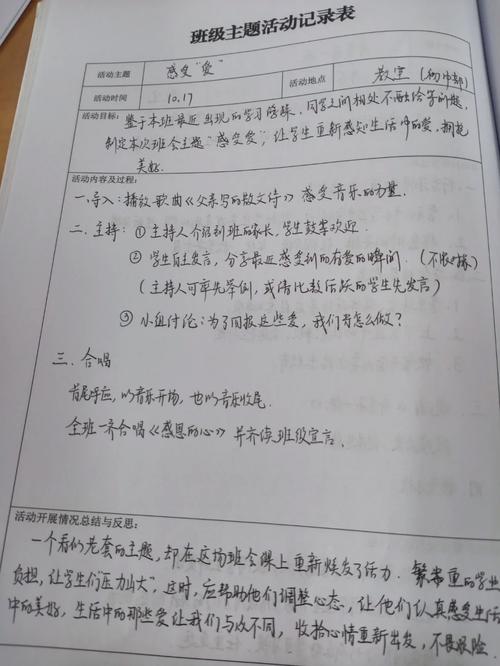 班级主题活动记录表
活动主题 感受“爱”
活动地点 教室(初中部)
活动时间 10.17
活动目标:鉴于本班最近出现的学习倦怠,同学之间相处不融洽等问题,
制定本次班会主题“感受爱”,让学生重新感知生活中的爱,拥抱
美好.
活动内容及过程:
一.导入:播放歌曲《父亲写的散文诗》感受音乐的力量.
二.主持:①主持人介绍到班的家长,学生鼓掌欢迎.
②学生自主发言,分享最近感受到的有爱的瞬间.(不限对象)
(主持人可率先举例,或请比较活跃的学生先发言)
③小组讨论:为了回报这些爱,我们为怎么做?
三.合唱
首尾呼应,以音乐开场,也以音乐收尾.
全班一齐合唱《感恩的心》并齐读班级宣言.
活动开展情况总结与反思:
一个看似老套的主题,却在这场班会课上重新焕发了活力.繁重的学业
负担,让学生们“压力山大”,这时,应帮助他们调整心态,让他们认真感受生活
中的美好,生活中的那些爱让我们与众不同,收拾心情重新出发,不畏艰险.